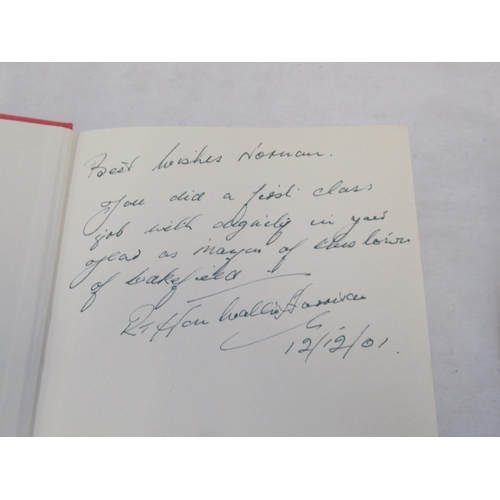 Best Wishes Norman.
You did a first class
job with dignity in your
year as mayor of this town
of Wakefield
Rt Hon Walter Harrison
12/12/01.